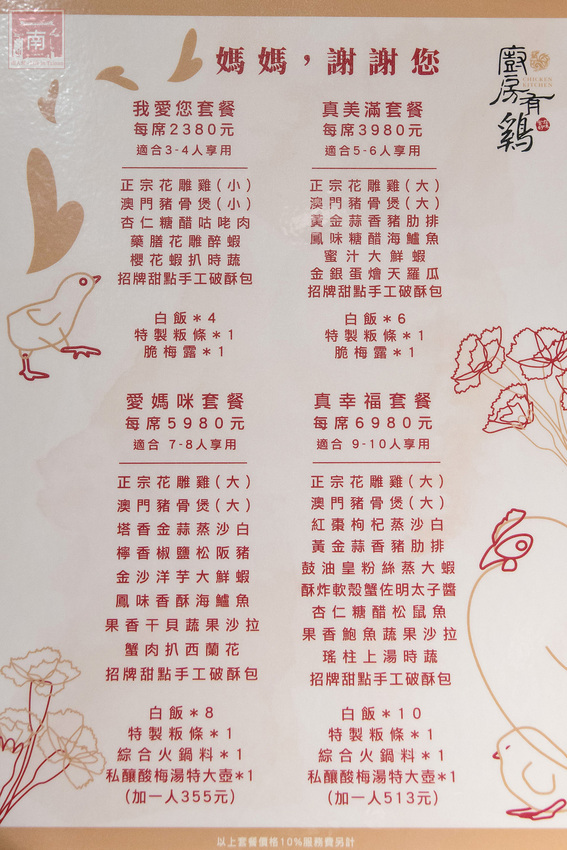 南
媽媽，謝謝您
廚房有雞
CHICKEN
KITCHEN
我愛您套餐
每席2380元
適合3-4人享用
正宗花雕雞(小)
澳門豬骨煲(小)
杏仁糖醋咕咾肉
藥膳花雕醉蝦
櫻花蝦扒時蔬
招牌甜點手工破酥包
白飯＊4
特製粄條＊1
脆梅露＊1
真美滿套餐
每席3980元
適合5-6人享用
正宗花雕雞(大)
澳門豬骨煲(大)
黃金蒜香豬肋排
鳳味糖醋海鱸魚
蜜汁大鮮蝦
金銀蛋燴天羅瓜
招牌甜點手工破酥包
白飯＊6
特製粄條＊1
脆梅露＊1
愛媽咪套餐
每席5980元
適合 7-8人享用
正宗花雕雞(大)
澳門豬骨煲(大)
塔香金蒜蒸沙白
檸香椒鹽松阪豬
金沙洋芋大鮮蝦
鳳味香酥海鱸魚
果香干貝蔬果沙拉
蟹肉扒西蘭花
招牌甜點手工破酥包
白飯＊8
特製粄條＊1
綜合火鍋料＊1
私釀酸梅湯特大壺＊1
(加一人355元)
真幸福套餐
每席6980元
適合 9-10人享用
正宗花雕雞(大)
澳門豬骨煲(大)
紅棗枸杞蒸沙白
黃金蒜香豬肋排
鼓油皇粉絲蒸大蝦
酥炸軟殼蟹佐明太子醬
杏仁糖醋松鼠魚
果香鮑魚蔬果沙拉
瑤柱上湯時蔬
招牌甜點手工破酥包
白飯＊10
特製粄條＊1
綜合火鍋料＊1
私釀酸梅湯特大壺＊1
(加一人513元)
以上套餐價格10%服務費另計